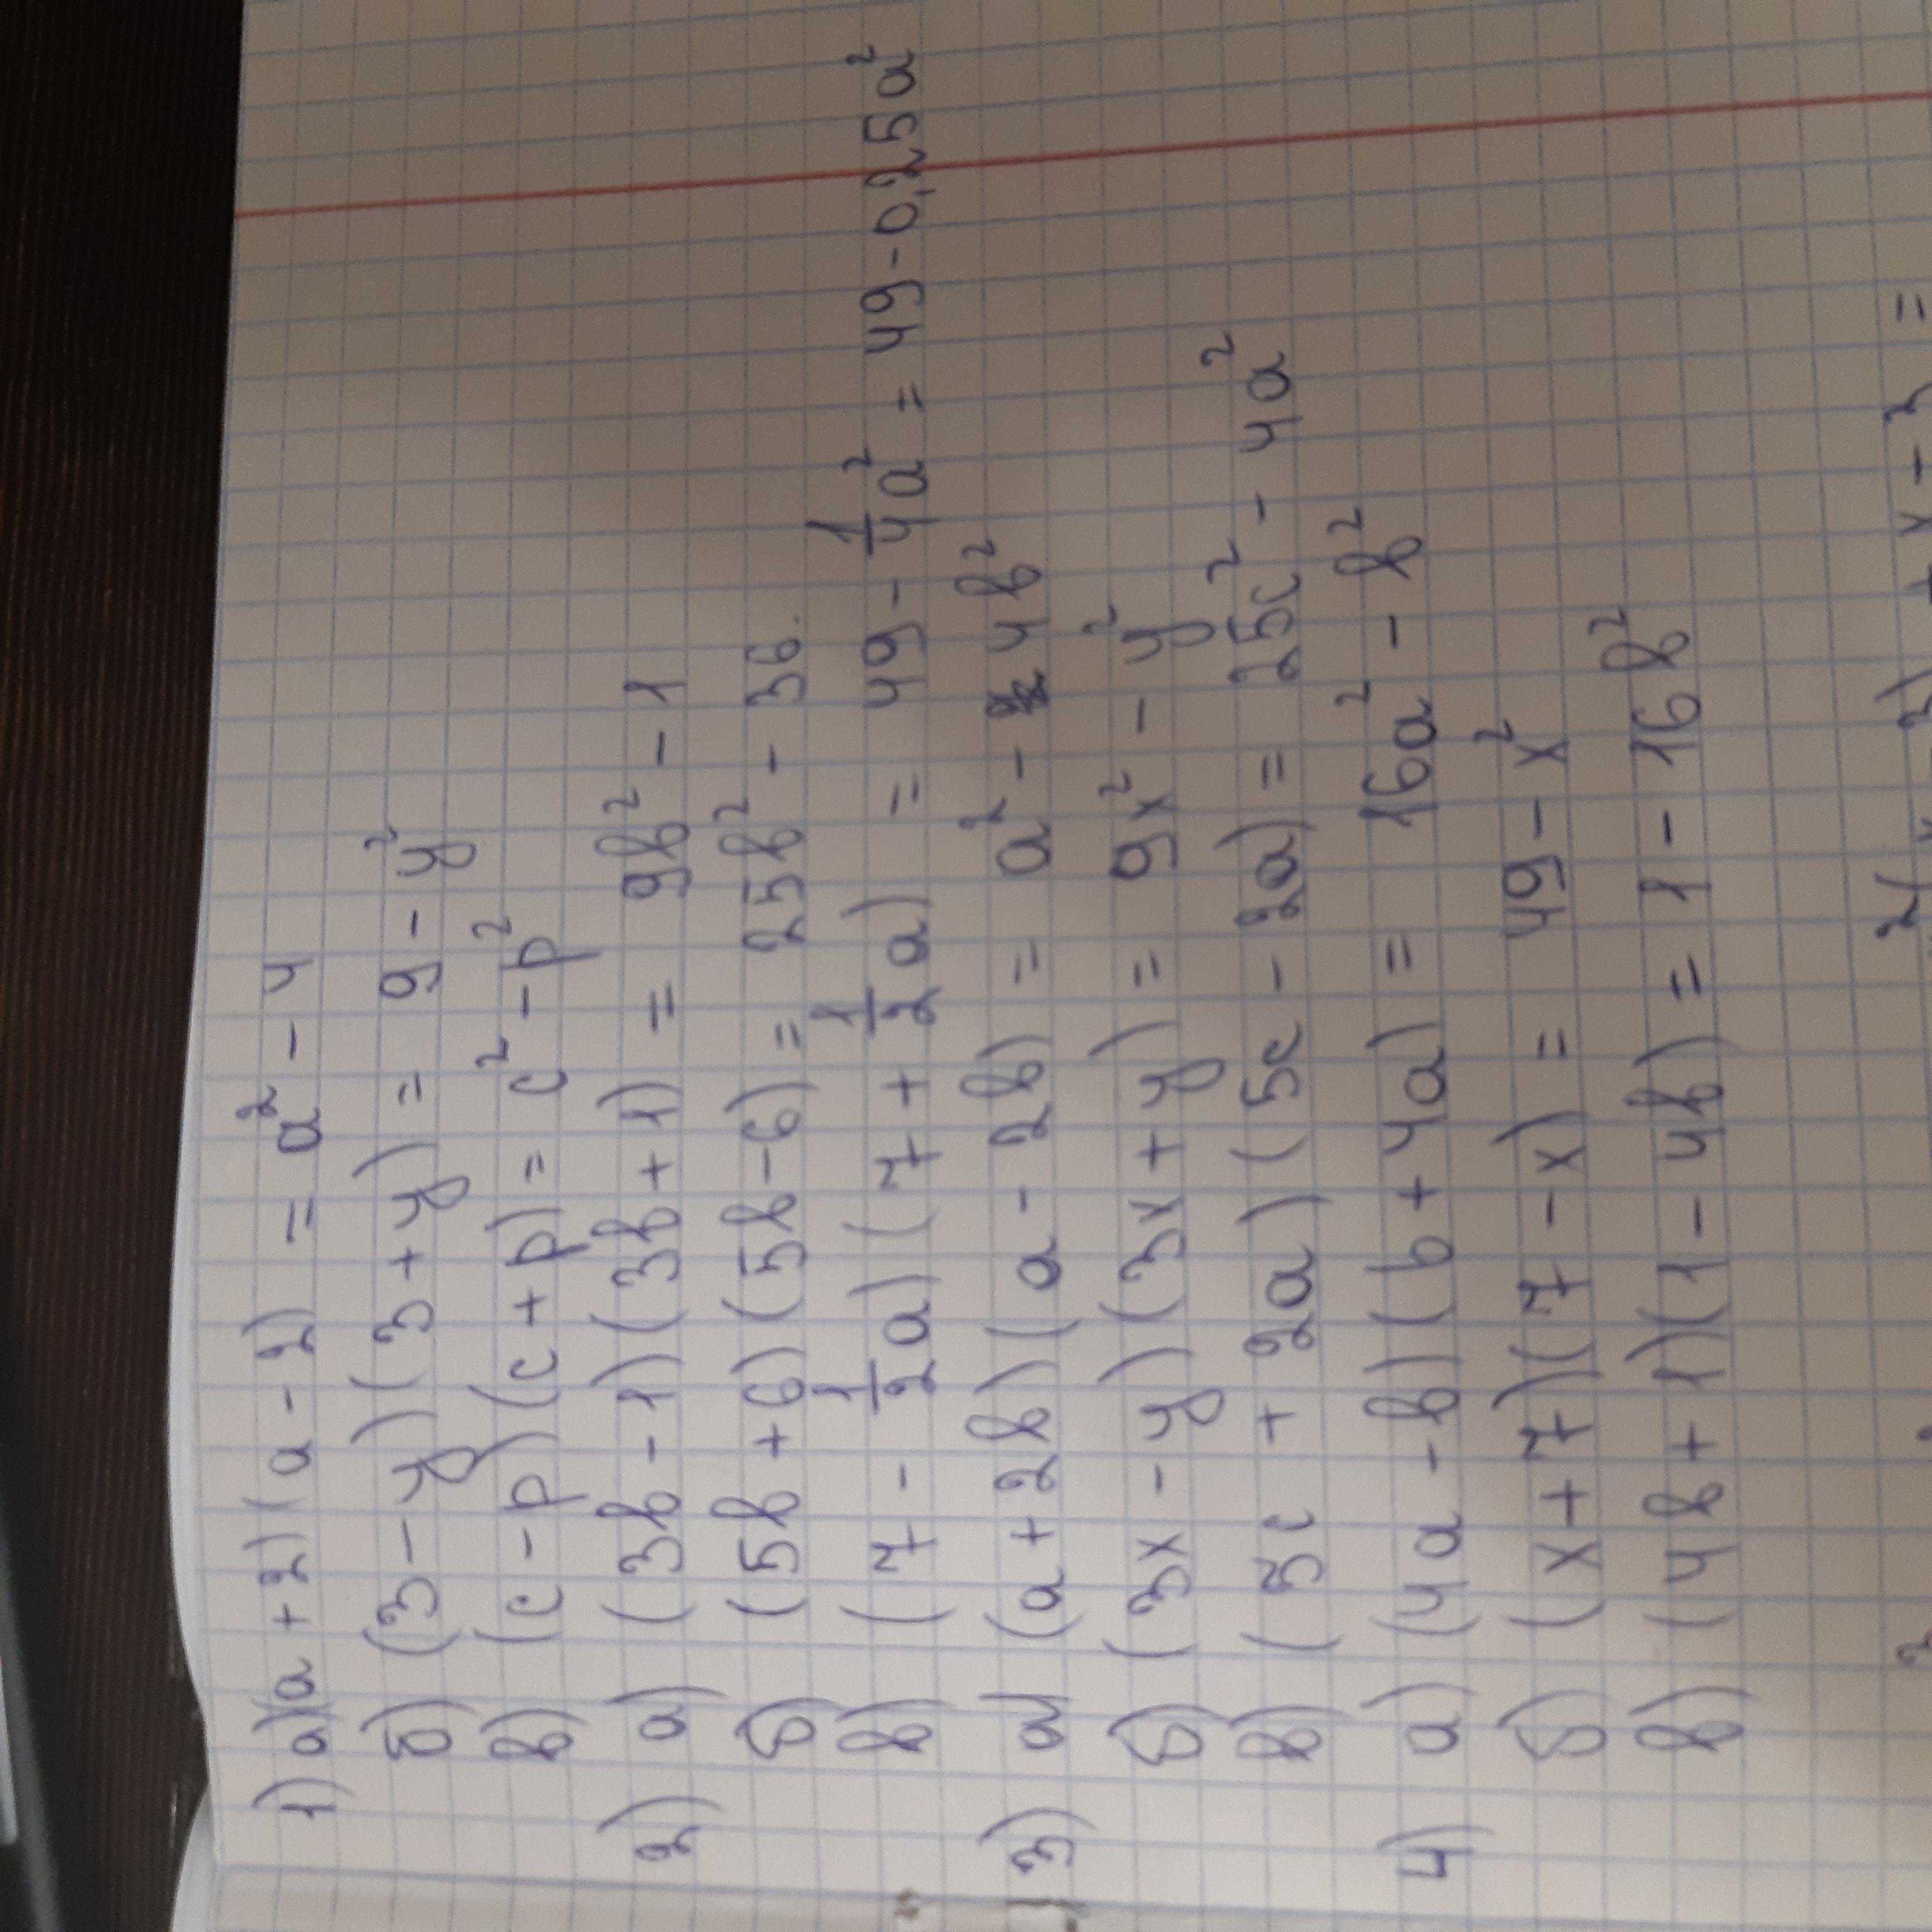 1) а) (a + 2) (a - 2) = a² - 4
б) (3 - y) (3 + y) = 9 - y²
в) (c - p) (c + p) = c² - p²
2) а) (3в - 1) (3в + 1) = 9в² - 1
б) (5в + 6) (5в - 6) = 25в² - 36
в) (7 - 1/2 a) (7 + 1/2 a) = 49 - 1/4 a² = 49 - 0,25a²
3) а) (a + 2в) (a - 2в) = a² - 4в²
б) (3x - y) (3x + y) = 9x² - y²
в) (5c + 2a) (5c - 2a) = 25c² - 4a²
4) а) (4a - в) (b + 4a) = 16a² - в²
б) (x + 7) (7 - x) = 49 - x²
в) (4в + 1) (1 - 4в) = 1 - 16в²